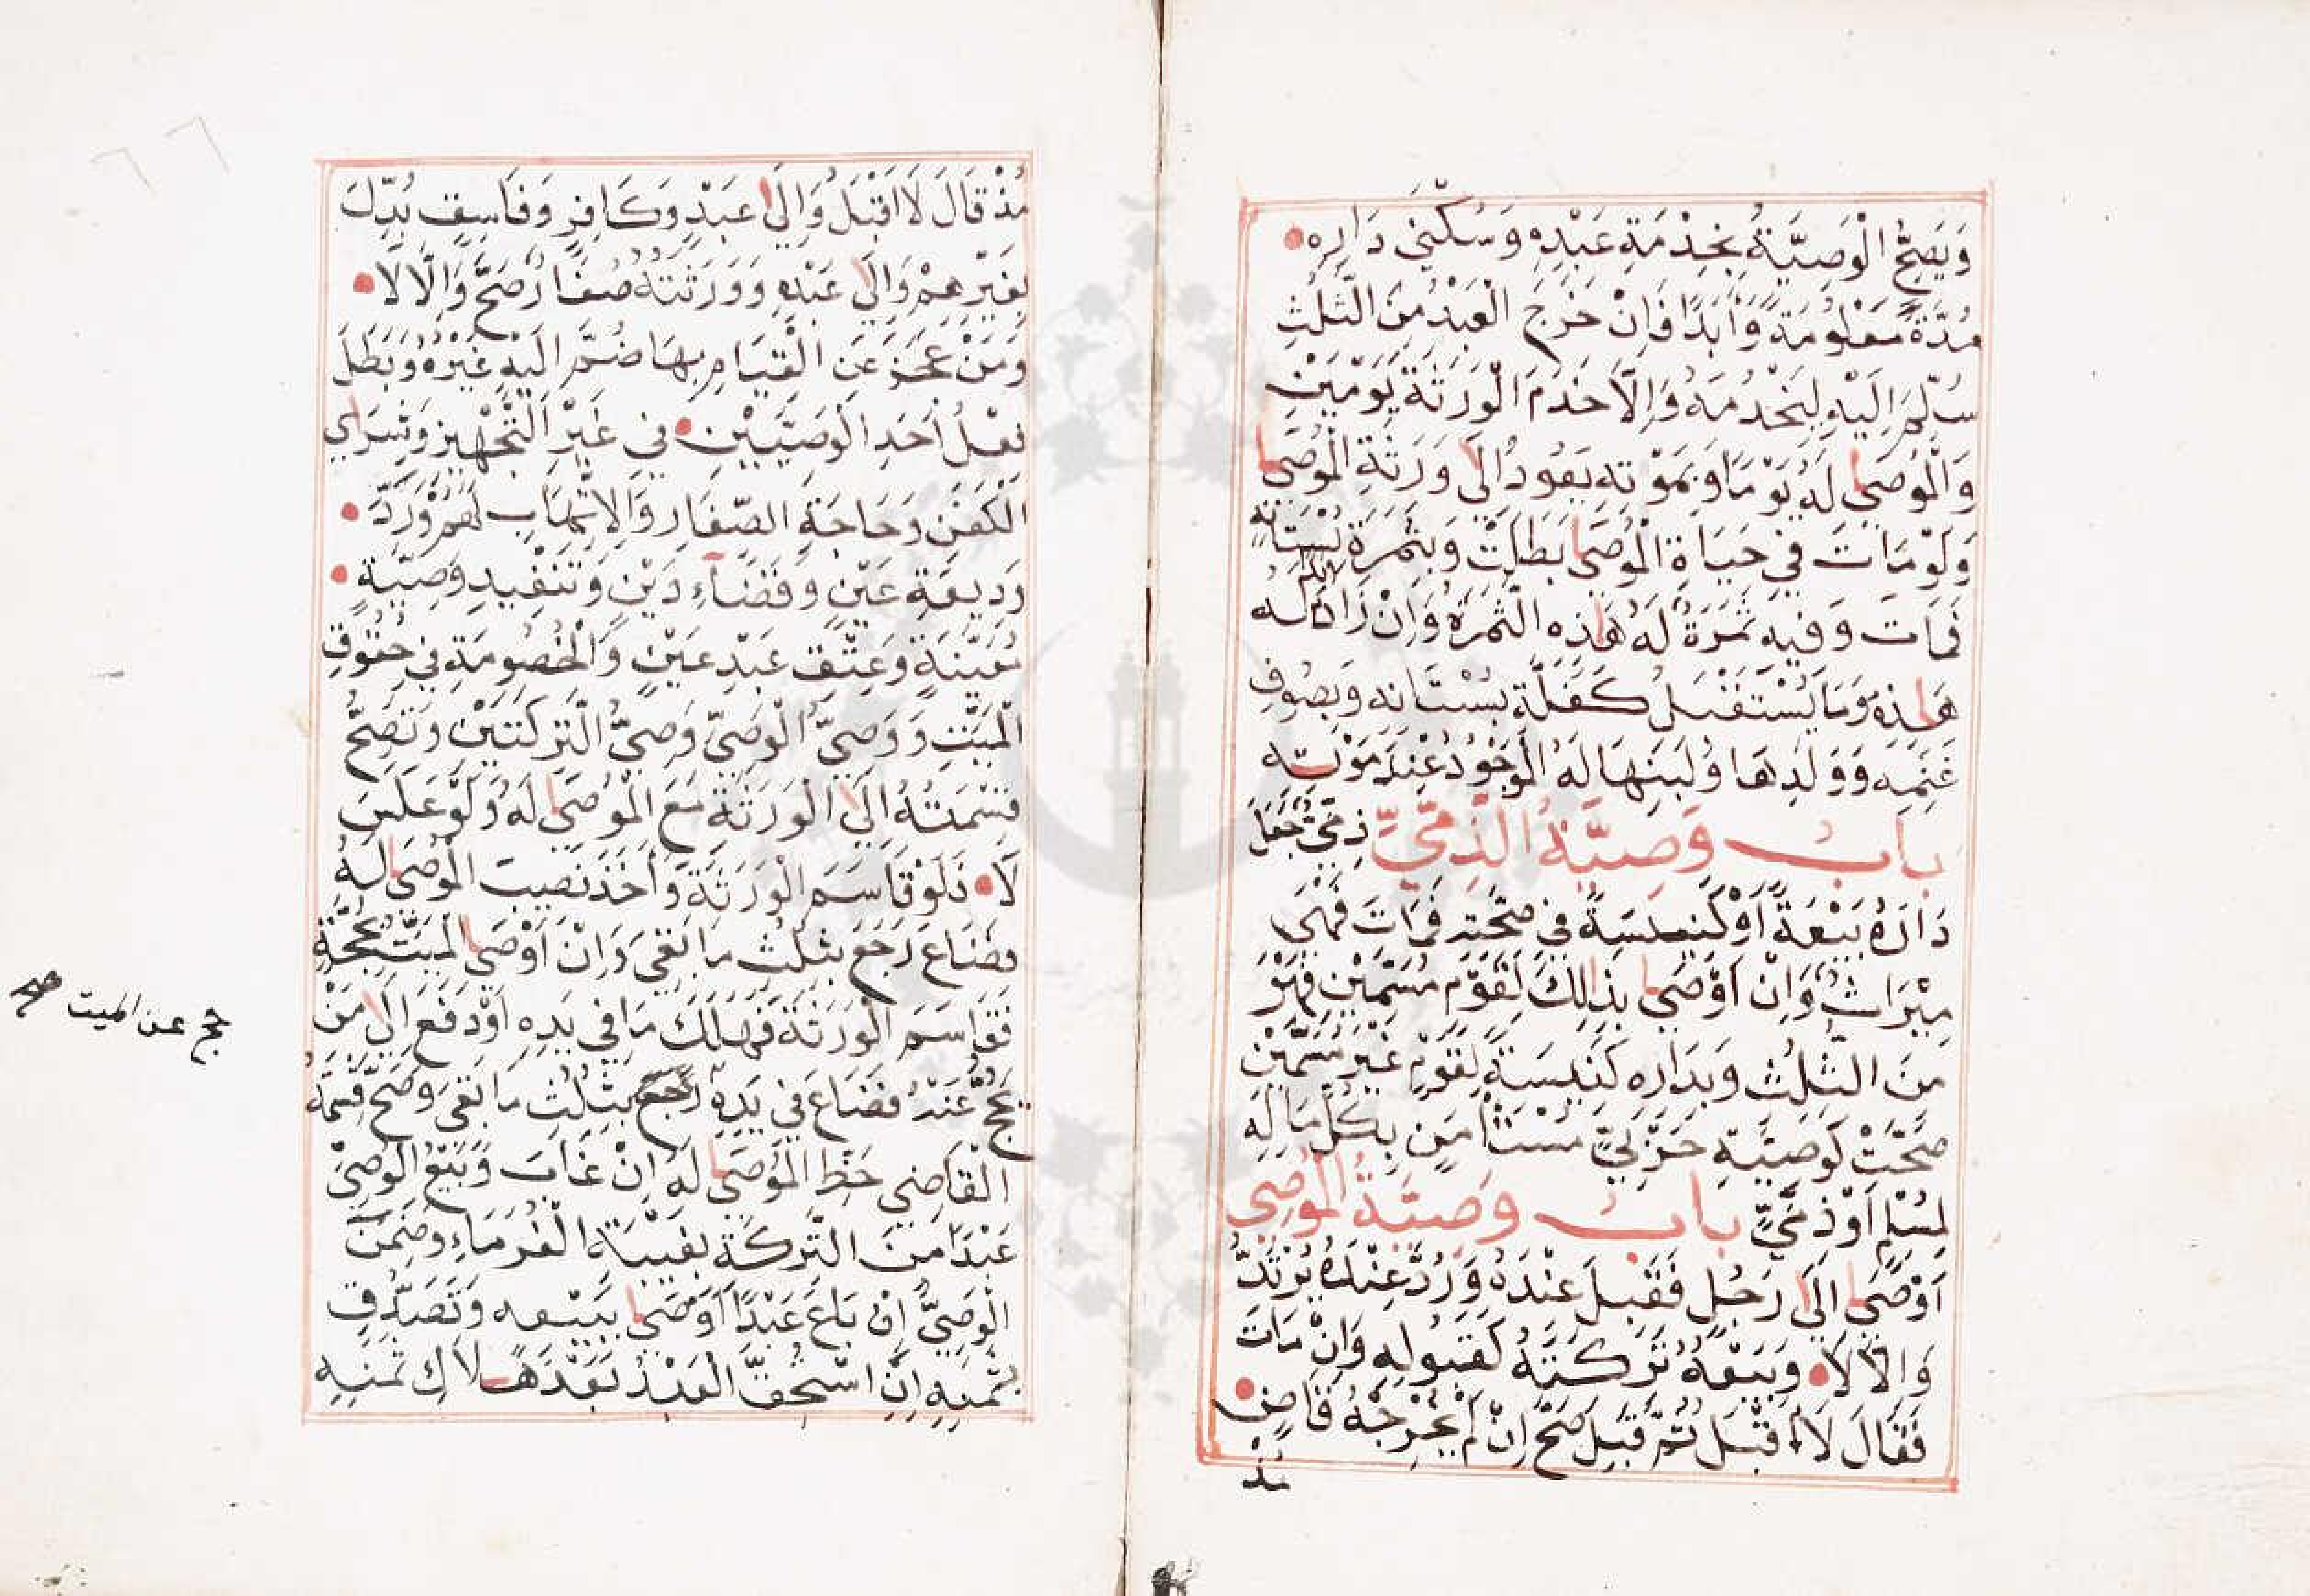 وَيَصِحُّ الْوَصِيَّةُ بِخِدْمَةِ عَبْدِهِ وَسُكْنَي دَارِهِ
مُدَّةً مَعْلُومَةً وَأَبَدًا فَاِنْ خَرَجَ الْعَبْدُ مِنَ الثُّلُثِ
سُلِّمَ اِلَيْهِ لِيَخْدُمَهُ وَاِلَّا خَدَمَ الْوَرَثَةَ يَوْمَيْنِ
وَالْمُوصَي لَهُ يَوْمًا وَبِمَوْتِهِ يَعُودُ اِلَي وَرَثَةِ الْمُوصِي
وَلَوْ مَاتَ فِي حَيَاةِ الْمُوصِي بَطَلَتْ وَبِثَمَرَةِ بُسْتَانِهِ
فَمَاتَ وَفِيهِ ثَمَرَةٌ لَهُ هَذِهِ الثَّمَرَةُ وَاِنْ زَادَ لَهُ
هَذِهِ وَمَا يُسْتَقْبَلُ كَغَلَّةِ بُسْتَانِهِ وَبِصُوفِ
غَنَمِهِ وَوَلَدِهَا وَلَبَنِهَا لَهُ الْمَوْجُودُ عِنْدَ مَوْتِهِ
بابُ وَصِيَّةِ الذِّمِّيِّ ذِمِّيٌّ جَعَلَ
دَارَهُ بَيْعَةً اَوْ كَنِيسَةً فِي صِحَّتِهِ فَمَاتَ فَهِيَ
مِيْرَاثٌ وَاِنْ اَوْصَي بِذَلِكَ لِقَوْمٍ مُسَمَّيْنِ فَهُوَ
مِنَ الثُّلُثِ وَبِدَارِهِ كَنِيسَةً لِقَوْمٍ غَيْرَ مُسَمَّيْنِ
صَحَّتْ كَوَصِيَّةِ حَرْبِيٍّ مُسْتَأْمَنٍ بِكُلِّ مَالِهِ
لِمُسْلِمٍ اَوْ ذِمِّيٍّ بابُ وَصِيَّةُ الْمُوصِي
اَوْصَي اِلَي رَجُلٍ فَقَبِلَ عِنْدَهُ وَرُدَّ عِنْدَهُ يُرْتَدُّ
وَاِلَّا لَا وَبَيْعُهُ تَرِكَتَهُ كَقَبُولِهِ وَاِنْ مَاتَ
فَقَالَ لَا اَقْبَلُ ثُمَّ قَبِلَ صَحَّ اِنْ لَمْ يُخْرِجْهُ قَاضٍ
مُذْ
مُذْ قَالَ لَا اَقْبَلُ وَاِلَي عَبْدٍ وَكَافِرٍ وَفَاسِقٍ بُدِّلَ
بِغَيْرِهِمْ وَاِلَي عَبْدِهِ وَوَرَثَتُهُ صِغَارٌ صَحَّ وَاِلَّا لَا
وَمَنْ عَجَزَ عَنِ الْقِيَامِ بِهَا ضُمَّ اِلَيْهِ غَيْرُهُ وَبَطَلَ
فِعْلُ أَحَدِ الْوَصِيَّيْنِ فِي غَيْرِ التَّجْهِيزِ وَشِرَاي
الْكَفَنِ وَحَاجَةِ الصِّغَارِ وَالِاتِّهَابِ لَهُمْ وَرَدِّ
وَدِيعَةِ عَيْنٍ وَقَضَآءِ دَيْنٍ وَتَنْفِيدِ وَصِيَّةٍ
مُعَيَّنَةٍ وَعِتْقِ عَبْدِ عَيْنٍ وَالْخُصُومَةِ فِي حُقُوقِ
الْمَيِّتِ وَوَصِيُّ الْوَصِيِّ وَصِيُّ التَّرِكَتَيْنِ وَتَصِحُّ
قِسْمَتُهُ اِلَي الْوَرَثَةِ مَعَ الْمُوصَي لَهُ وَلَوْ عَكَسَ
لَا فَلَوْ قَاسَمَ الْوَرَثَةَ وَأَخَذَ نَصِيبَ الْمُوصَي لَهُ
فَضَاعَ رَجَعَ بِثُلُثِ مَا بَقِيَ وَاِنْ اَوْصَي الْمَيِّتُ بِحَجَّةٍ
فَقَاسَمَ الْوَرَثَةَ فَهَلَكَ مَا فِي يَدِهِ اَوْ دَفَعَ اِلَي مَنْ
يَحُجُّ عَنْهُ فَضَاعَ فِي يَدِهِ رَجَعَ بِثُلُثِ مَا بَقِيَ وَصَحَّ قِسْمَةُ
الْقَاضِي حَظَّ الْمُوصَي لَهُ اِنْ غَابَ وَبَيْعُ الْوَصِيِّ
عَبْدًا مِنَ التَّرِكَةِ بِغَيْبَةِ الْغُرَمَاءِ وَضَمِنَ
الْوَصِيُّ اِنْ بَاعَ عَبْدًا اَوْصَي بِبَيْعِهِ وَتَصَدُّقِ
بِثَمَنِهِ اِنْ اسْتُحِقَّ الْعَبْدُ بَعْدَ هَلَاكِ ثَمَنِهِ
حج عن الميت صح